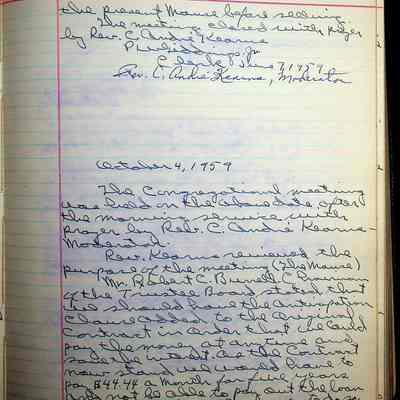 the present Manse before selling.
The meeting closed with prayer
by Rev. C. André Kearns
Clerk June 7, 1959
Rev. C. André Kearns, Moderator
October 4, 1959
The Congregational meeting
was held on the above date after
the morning service with
prayer by Rev. C. André Kearns-
Moderator.
Rev. Kearns reviewed the
purpose of the meeting (The Manse)
Mr. Robert C. Burrell, Chairman
of the Trustee Board stated that
we should have the Anticipation
Clause added to the Original
Contract in order that we could
pay the money at anytime and
save the interest. As the Contract
now stand we would have to
pay $44.44 a month for five years
and not be able to pay out the loan